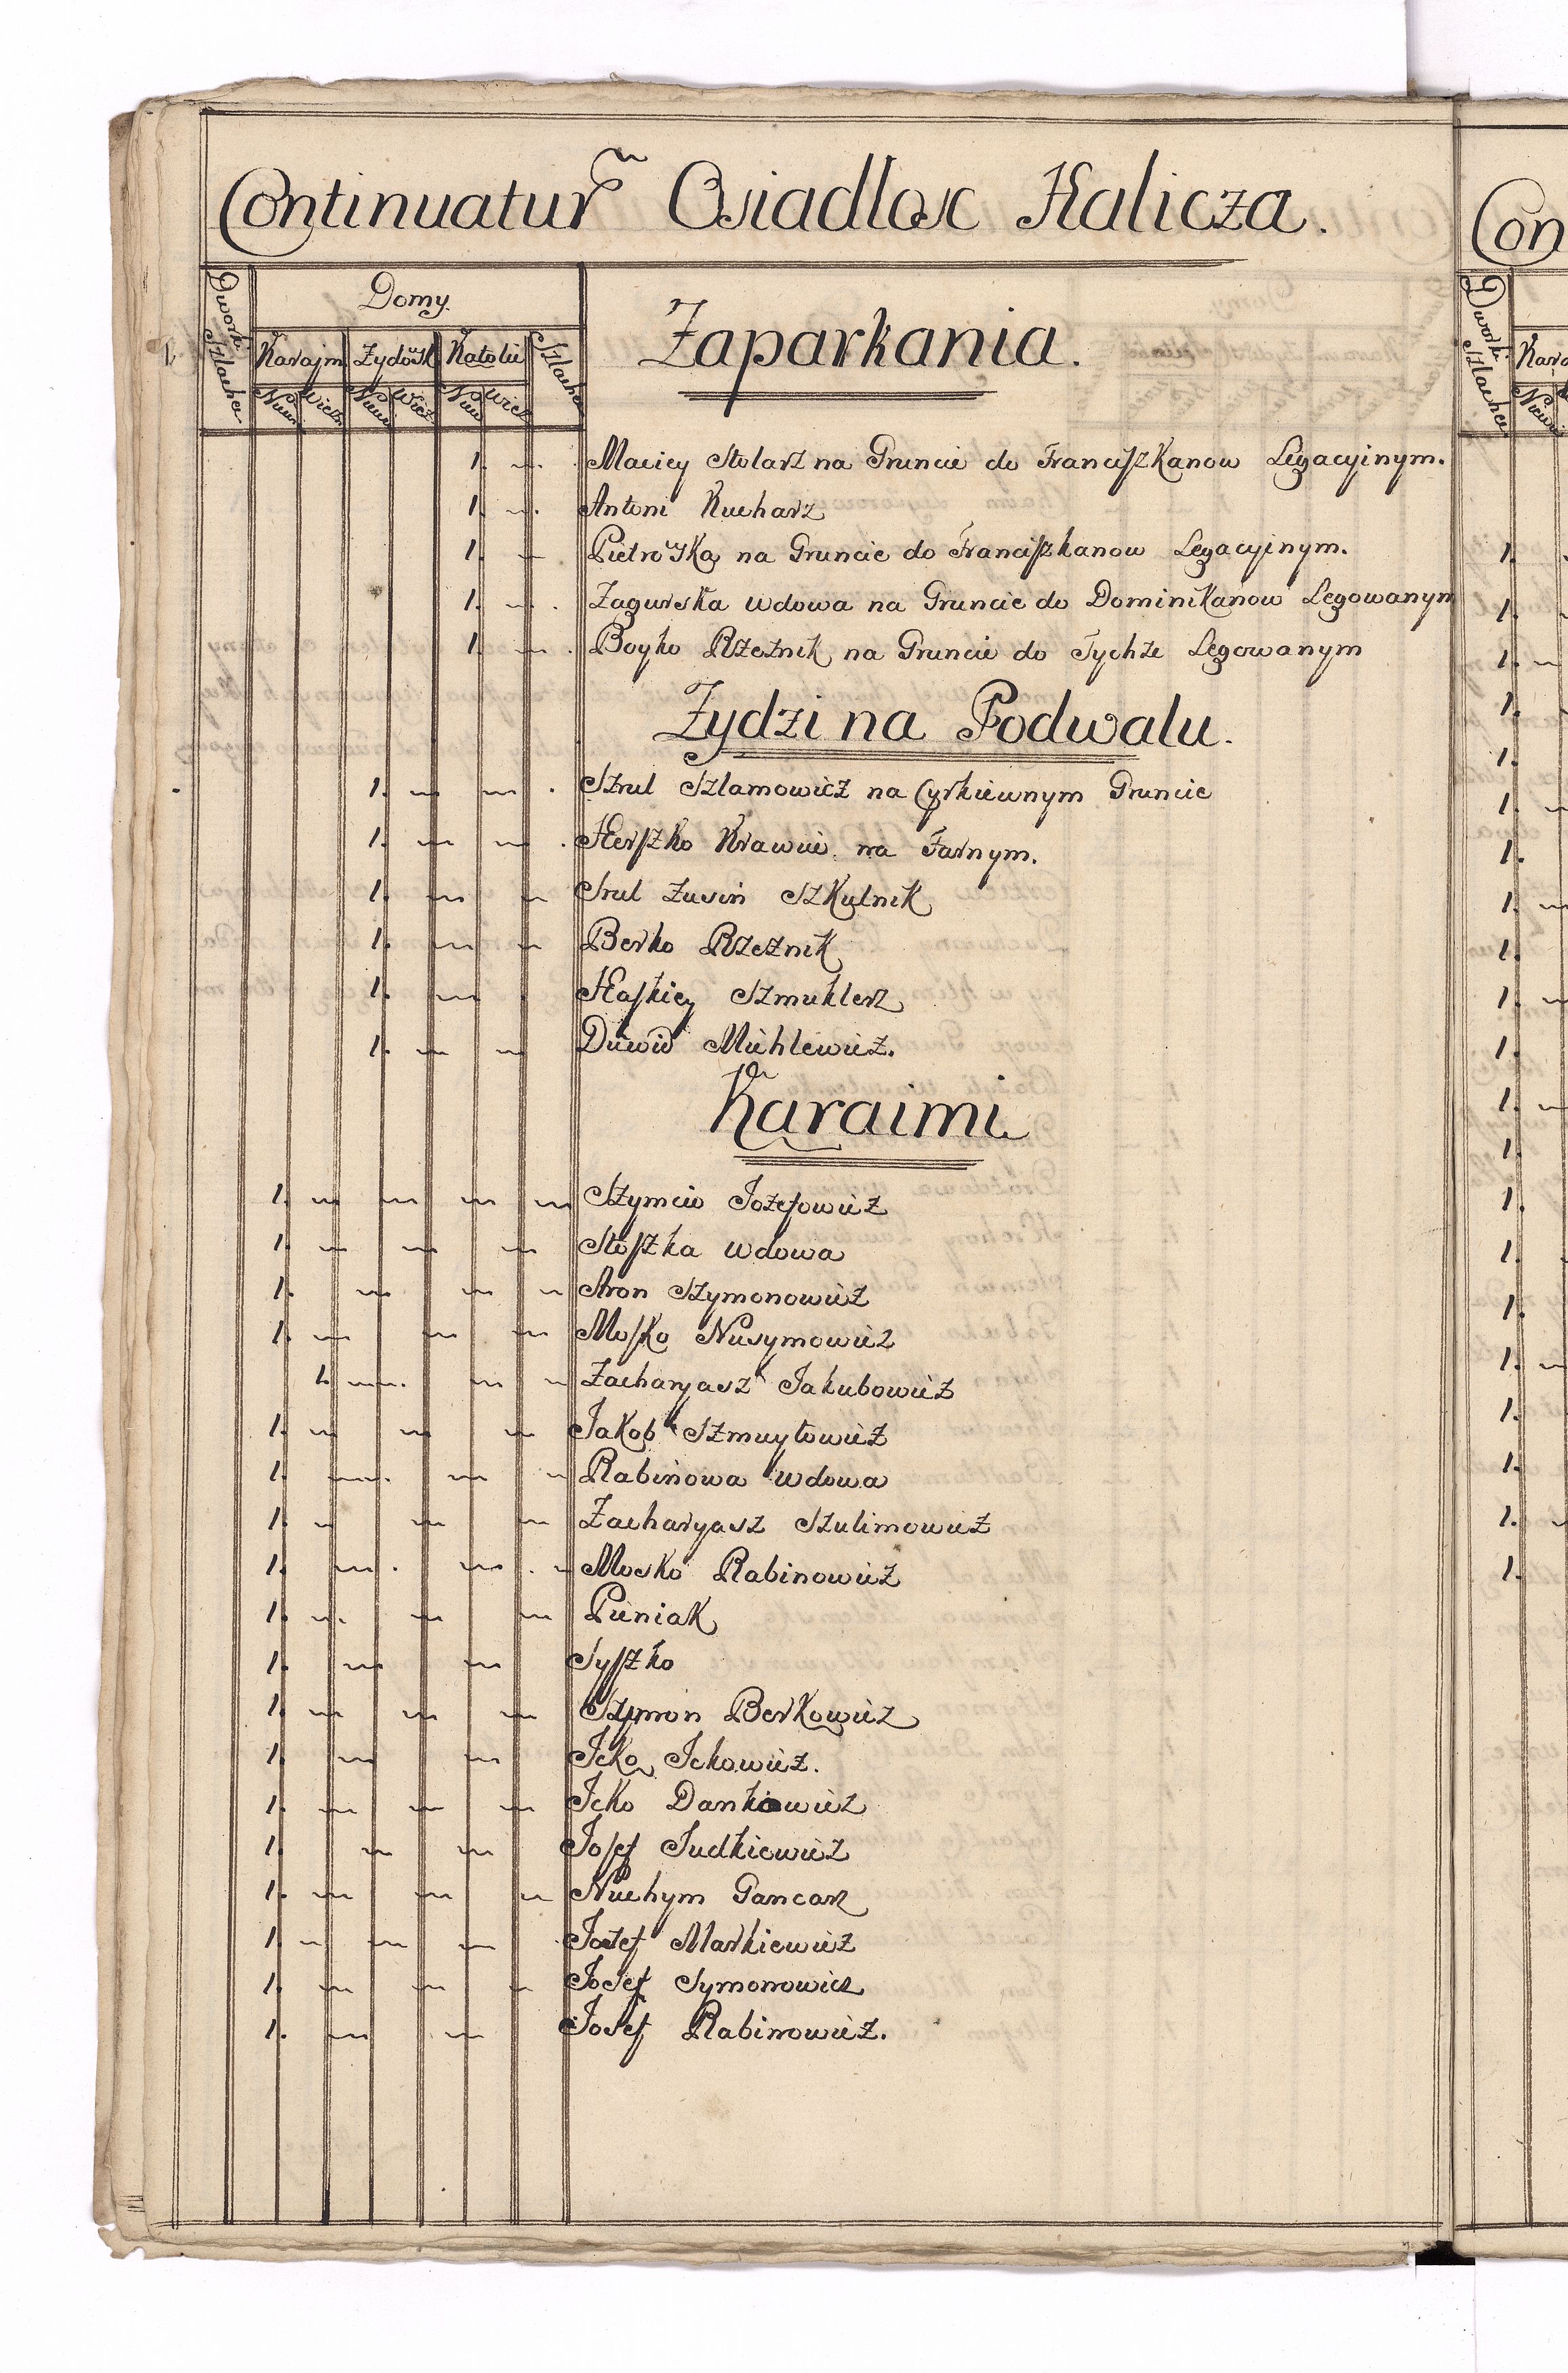 Continuatur Osiadlosc Halicza.
Dworki Szlachec
Domy.
Karajm Zydowsk Katolic Szlachec
Num Wiez Num Wiez Num Wiez
Zaparkania.
1. Maciey Stolarz na Gruncie do Franciszkanow Legacyinym.
1. Antoni Kucharz
1. na Gruncie do Franciszkanow Legacyinym.
1. Zagurska Wdowa na Gruncie do Dominikanow Legowanym
1. Boyko Rzeznik na Gruncie do Tychże Legowanym
Zydzi na Podwalu.
1. Szlamowicz na Cyrkiewnym Gruncie
1. Herszko Krawiec na Farnym.
1. Srul Zusin Szkulnik
1. Berko Rzeznik
1. Haskiey Szmuklerz
1. Duwid Michlewicz.
Karaimi
1. Szymcio Jozefowicz
1. Stoszka Wdowa
1. Aron Szymonowicz
1. Mosko Nusymowicz
1. Zacharyasz Jakubowicz
1. Jakob Szmuylowicz
1. Rabinowa Wdowa
1. Zacharyasz Szulimowicz
1. Mosko Rabinowicz
1. Pieniak
1. Syszko
1. Szymon Berkowicz
1. Icko Ickowicz.
1. Icko Dankiowicz
1. Josef Judkiewicz
1. Nuchym Gancarz
1. Jozef Markiewicz
1. Josef Symonowicz
1. Josef Rabinowicz.